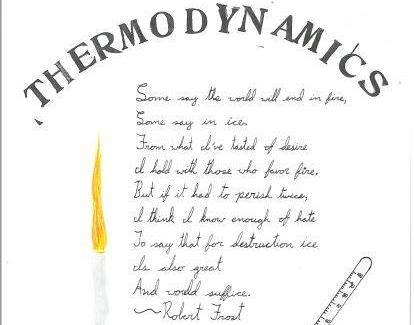 THERMODYNAMICS
Some say the world will end in fire,
Some say in ice.
From what I've tasted of desire
I hold with those who favor fire.
But if it had to perish twice,
I think I know enough of hate
To say that for destruction ice
Is also great
And would suffice.
~Robert Frost